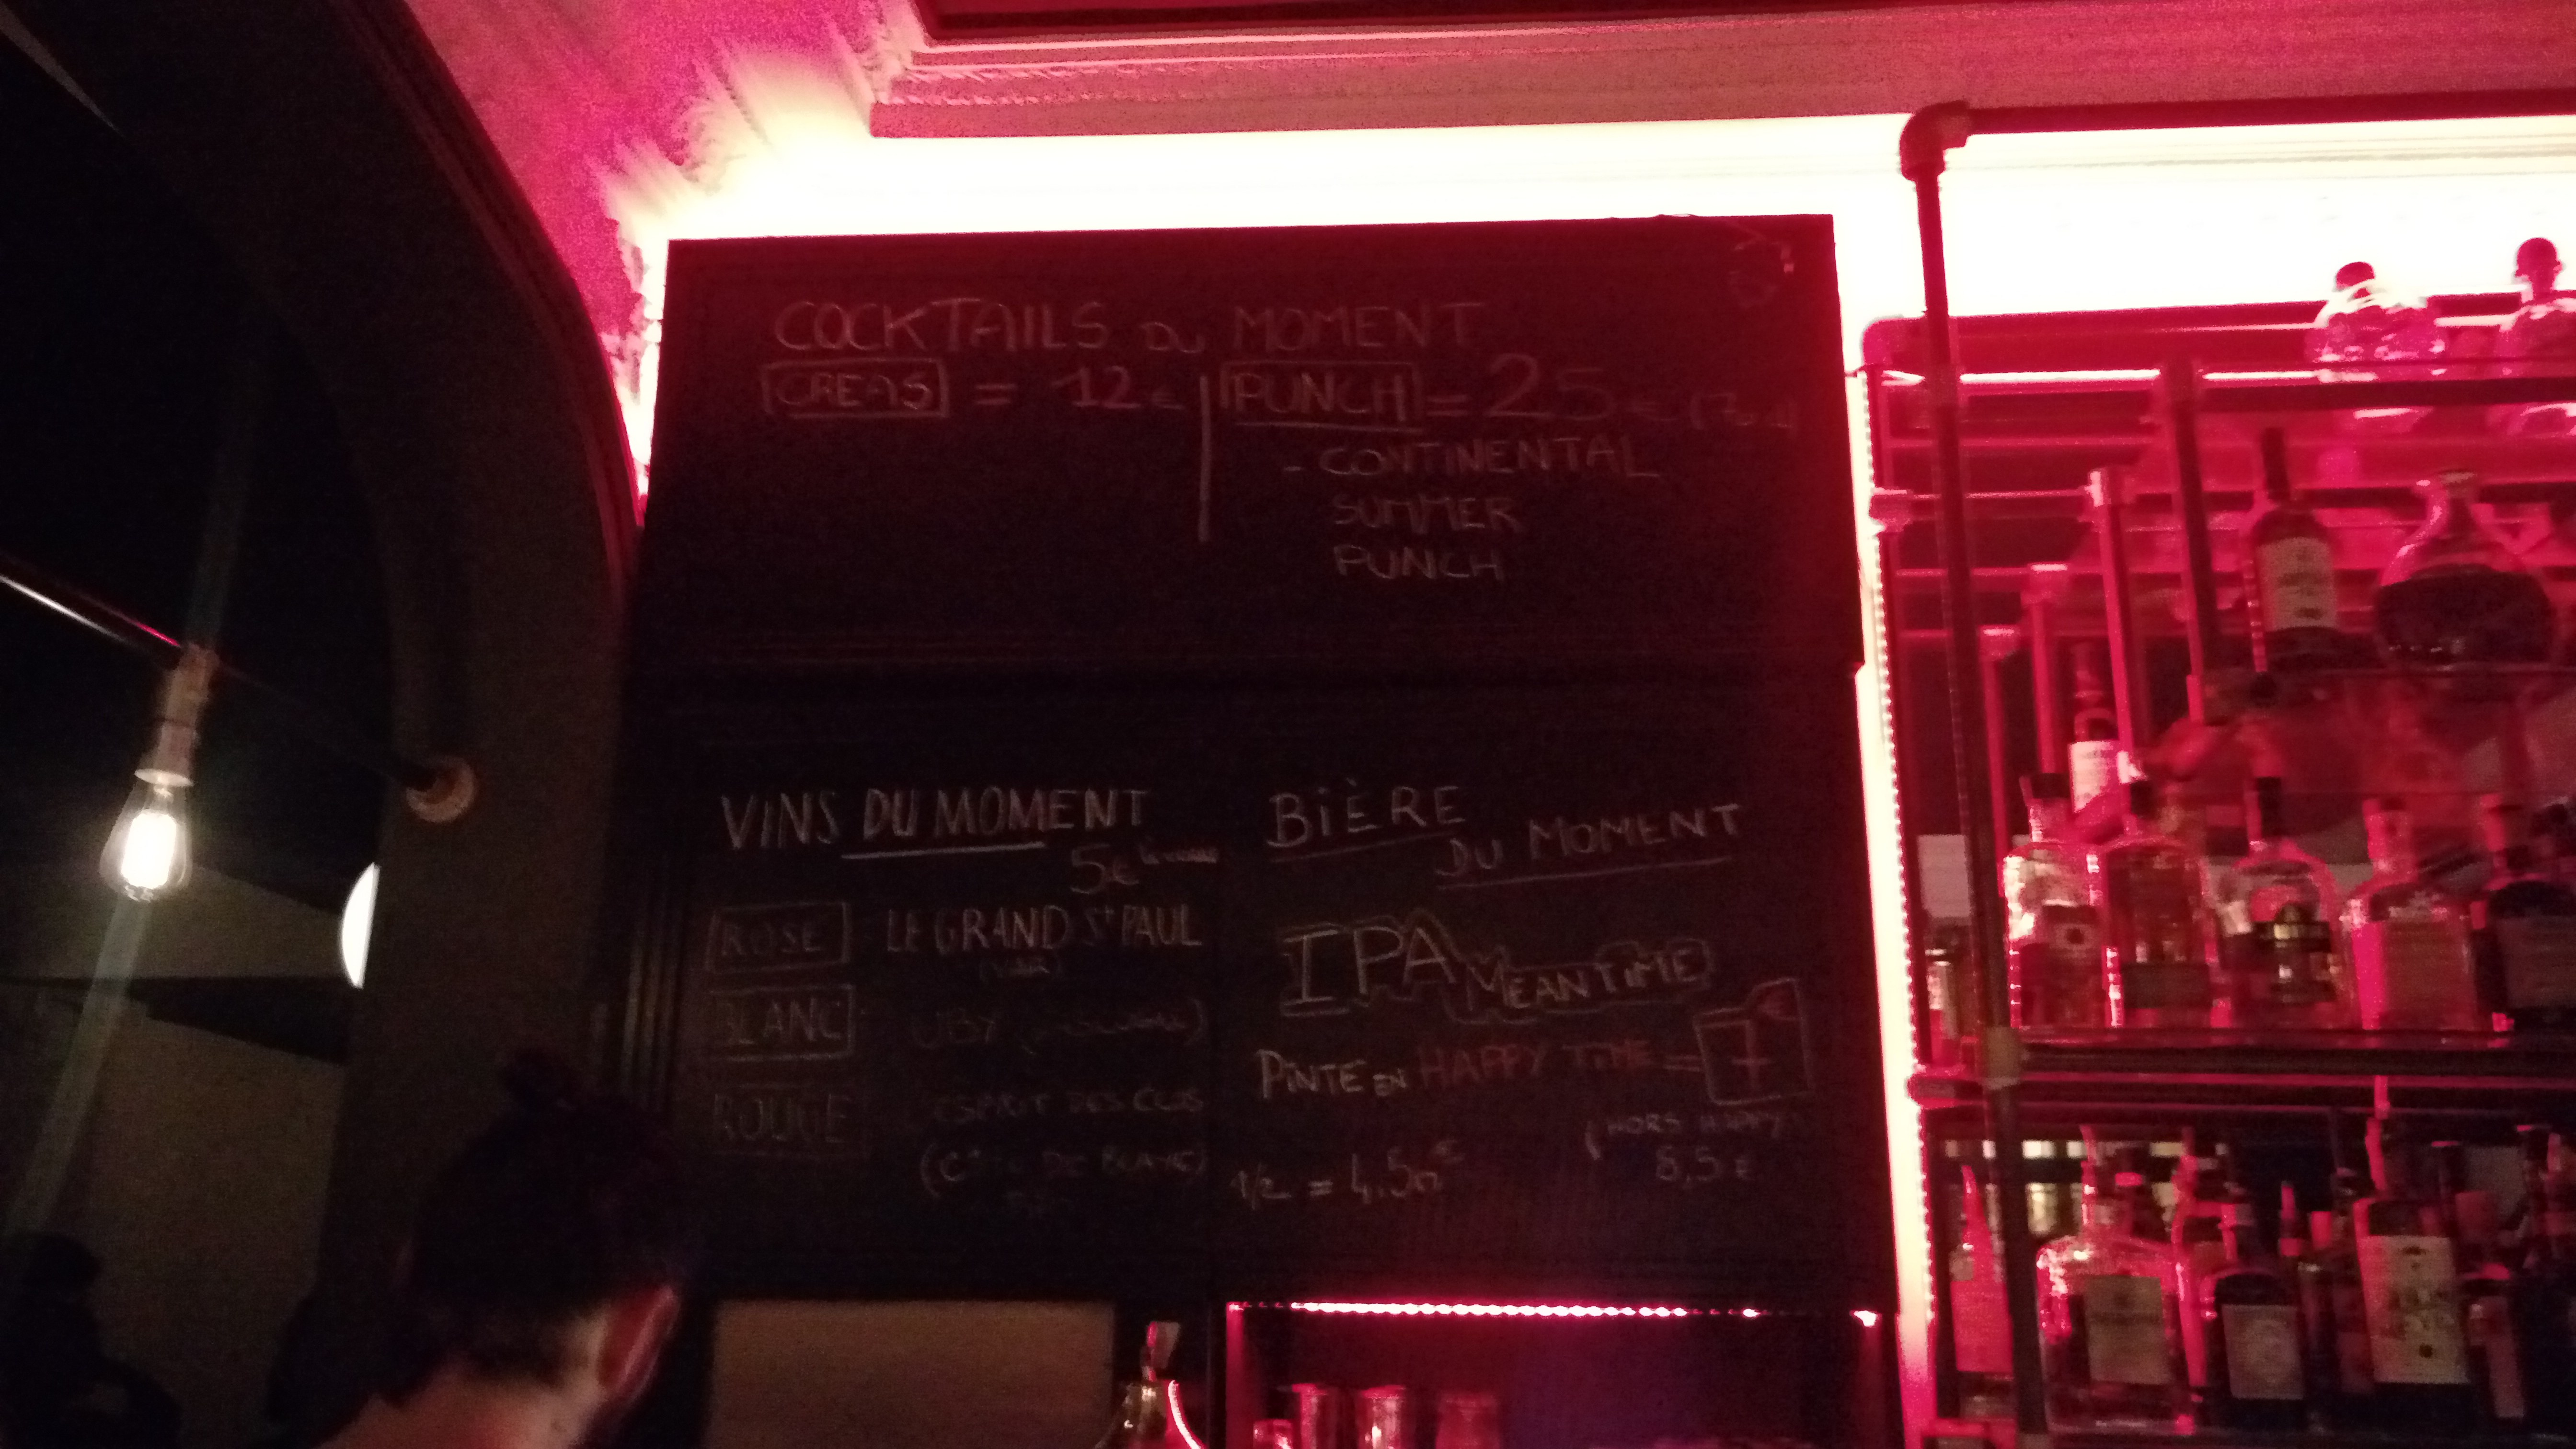 COCKTAILS DU MOMENT
CREAS = 12€
PUNCH = 25€
- CONTINENTAL
SUMMER
PUNCH
VINS DU MOMENT
5€
ROSÉ LE GRAND St PAUL
(VAR)
BLANC UBY
ROUGE L'ESPRIT DES CLOS
BIÈRE
DU MOMENT
IPA MEANTIME
PINTE EN HAPPY TIME = 7€
(HORS HAPPY)
8,5€
1/2 = 4.50€